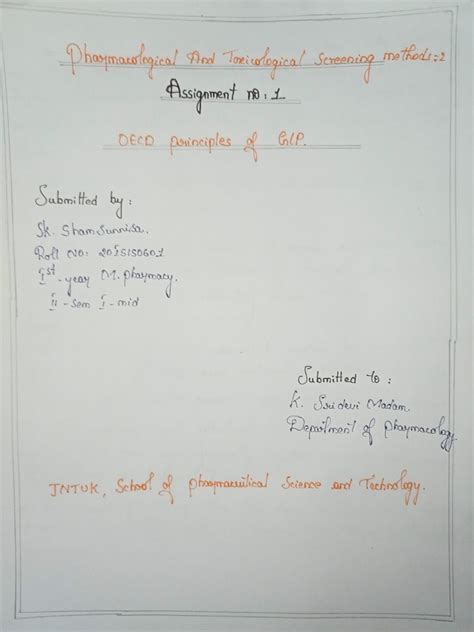 Pharmacological And Toxicological Screening methods:2
Assignment no:1
OECD principles of GLP.
Submitted by:
Sk. Shamsunnisa.
Roll NO: 20515S0601
Ist-year M.pharmacy.
II-sem I-mid
Submitted to:
K. Sridevi Madam.
Department of pharmacology
JNTUK, School of pharmaceutical Science and Technology.